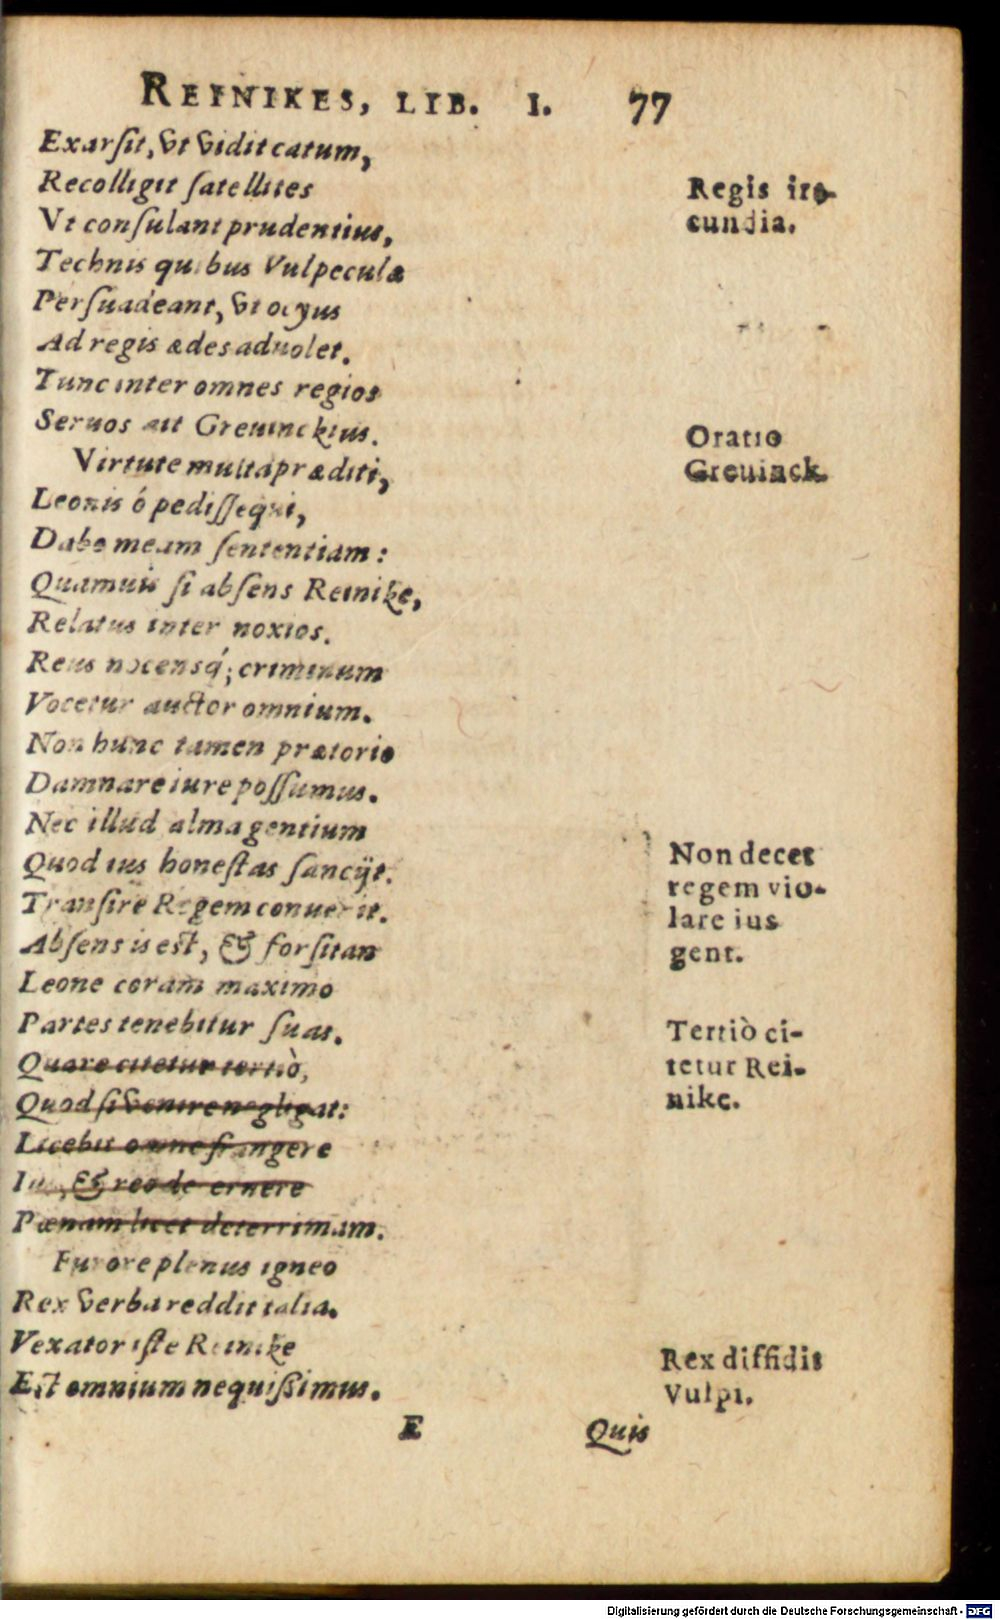 REINIKES, LIB. I. 77
Exarſit, vt vidit catum,
Recolligit ſatellites
Vt conſulant prudentius,
Technis quibus Vulpeculæ
Perſuadeant, vt ocyus
Ad regis ædes aduolet.
Tunc inter omnes regios
Seruos ait Greuinckius.
Virtute multa præditi,
Leonis ó pediſſequi,
Dabo meam ſententiam:
Quamuis ſi abſens Reinike,
Relatus inter noxios.
Reus nocensq́; criminum
Vocetur auctor omnium.
Non hunc tamen prætorio
Damnare iure poſſumus.
Nec illud alma gentium
Quod ius honeſtas ſancijt.
Tranſire Regem conuenit.
Abſens is est, & forſitan
Leone coram maximo
Partes tenebitur ſuas.
Quare citetur tertiò,
Quod ſi venire negligat:
Licebit omne frangere
Ius, & reo decernere
Pœnam licet deterrimam.
Furore plenus igneo
Rex verba reddit talia.
Vexator iſte Reinike
Est omnium nequiſſimus.
Regis ira-
cundia.
Oratio
Greuinck.
Non decet
regem vio-
lare ius
gent.
Tertiò ci-
tetur Rei-
nike.
Rex diffidit
Vulpi.
E Quis
Digitalisierung gefördert durch die Deutsche Forschungsgemeinschaft - DFG